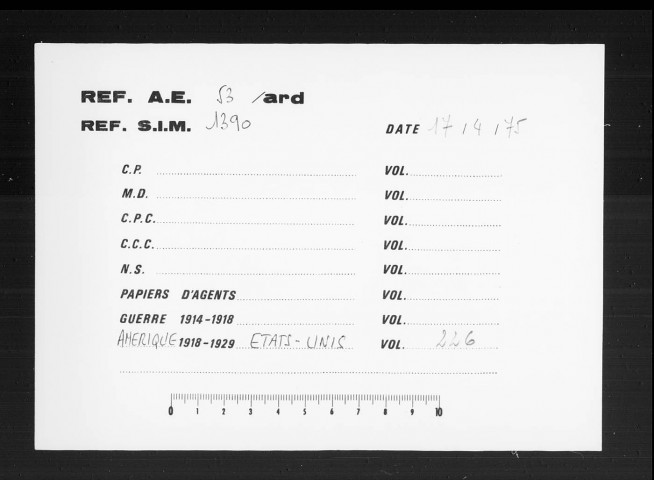 REF. A.E. 53 /ard
REF. S.I.M. 1390
DATE 17 / 4 / 75
C.P. VOL.
M.D. VOL.
C.P.C. VOL.
C.C.C. VOL.
N.S. VOL.
PAPIERS D'AGENTS VOL.
GUERRE 1914-1918 VOL.
AMERIQUE 1918-1929 ETATS-UNIS VOL. 226
0 1 2 3 4 5 6 7 8 9 10